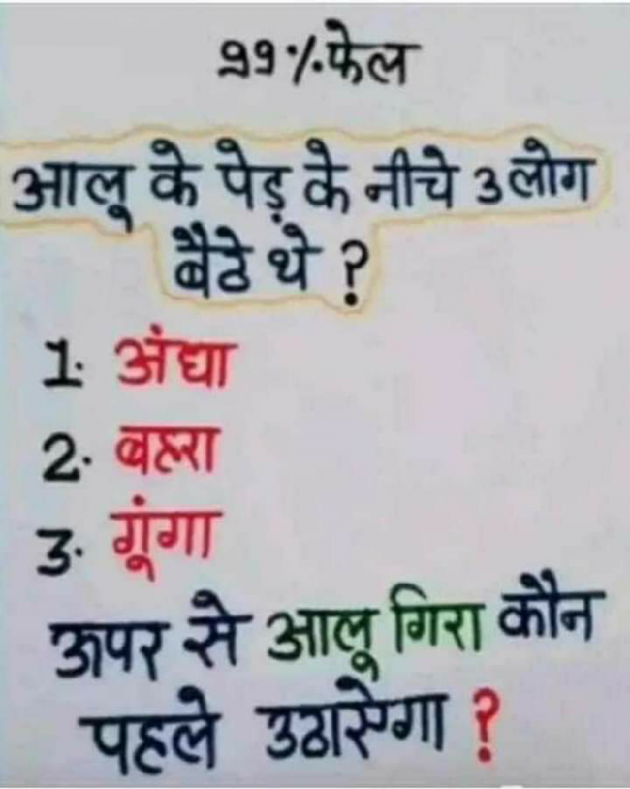 99%फेल
आलू के पेड़ के नीचे 3 लोग
बैठे थे ?
1. अंधा
2. बहरा
3. गूंगा
ऊपर से आलू गिरा कौन
पहले उठाऐगा ?